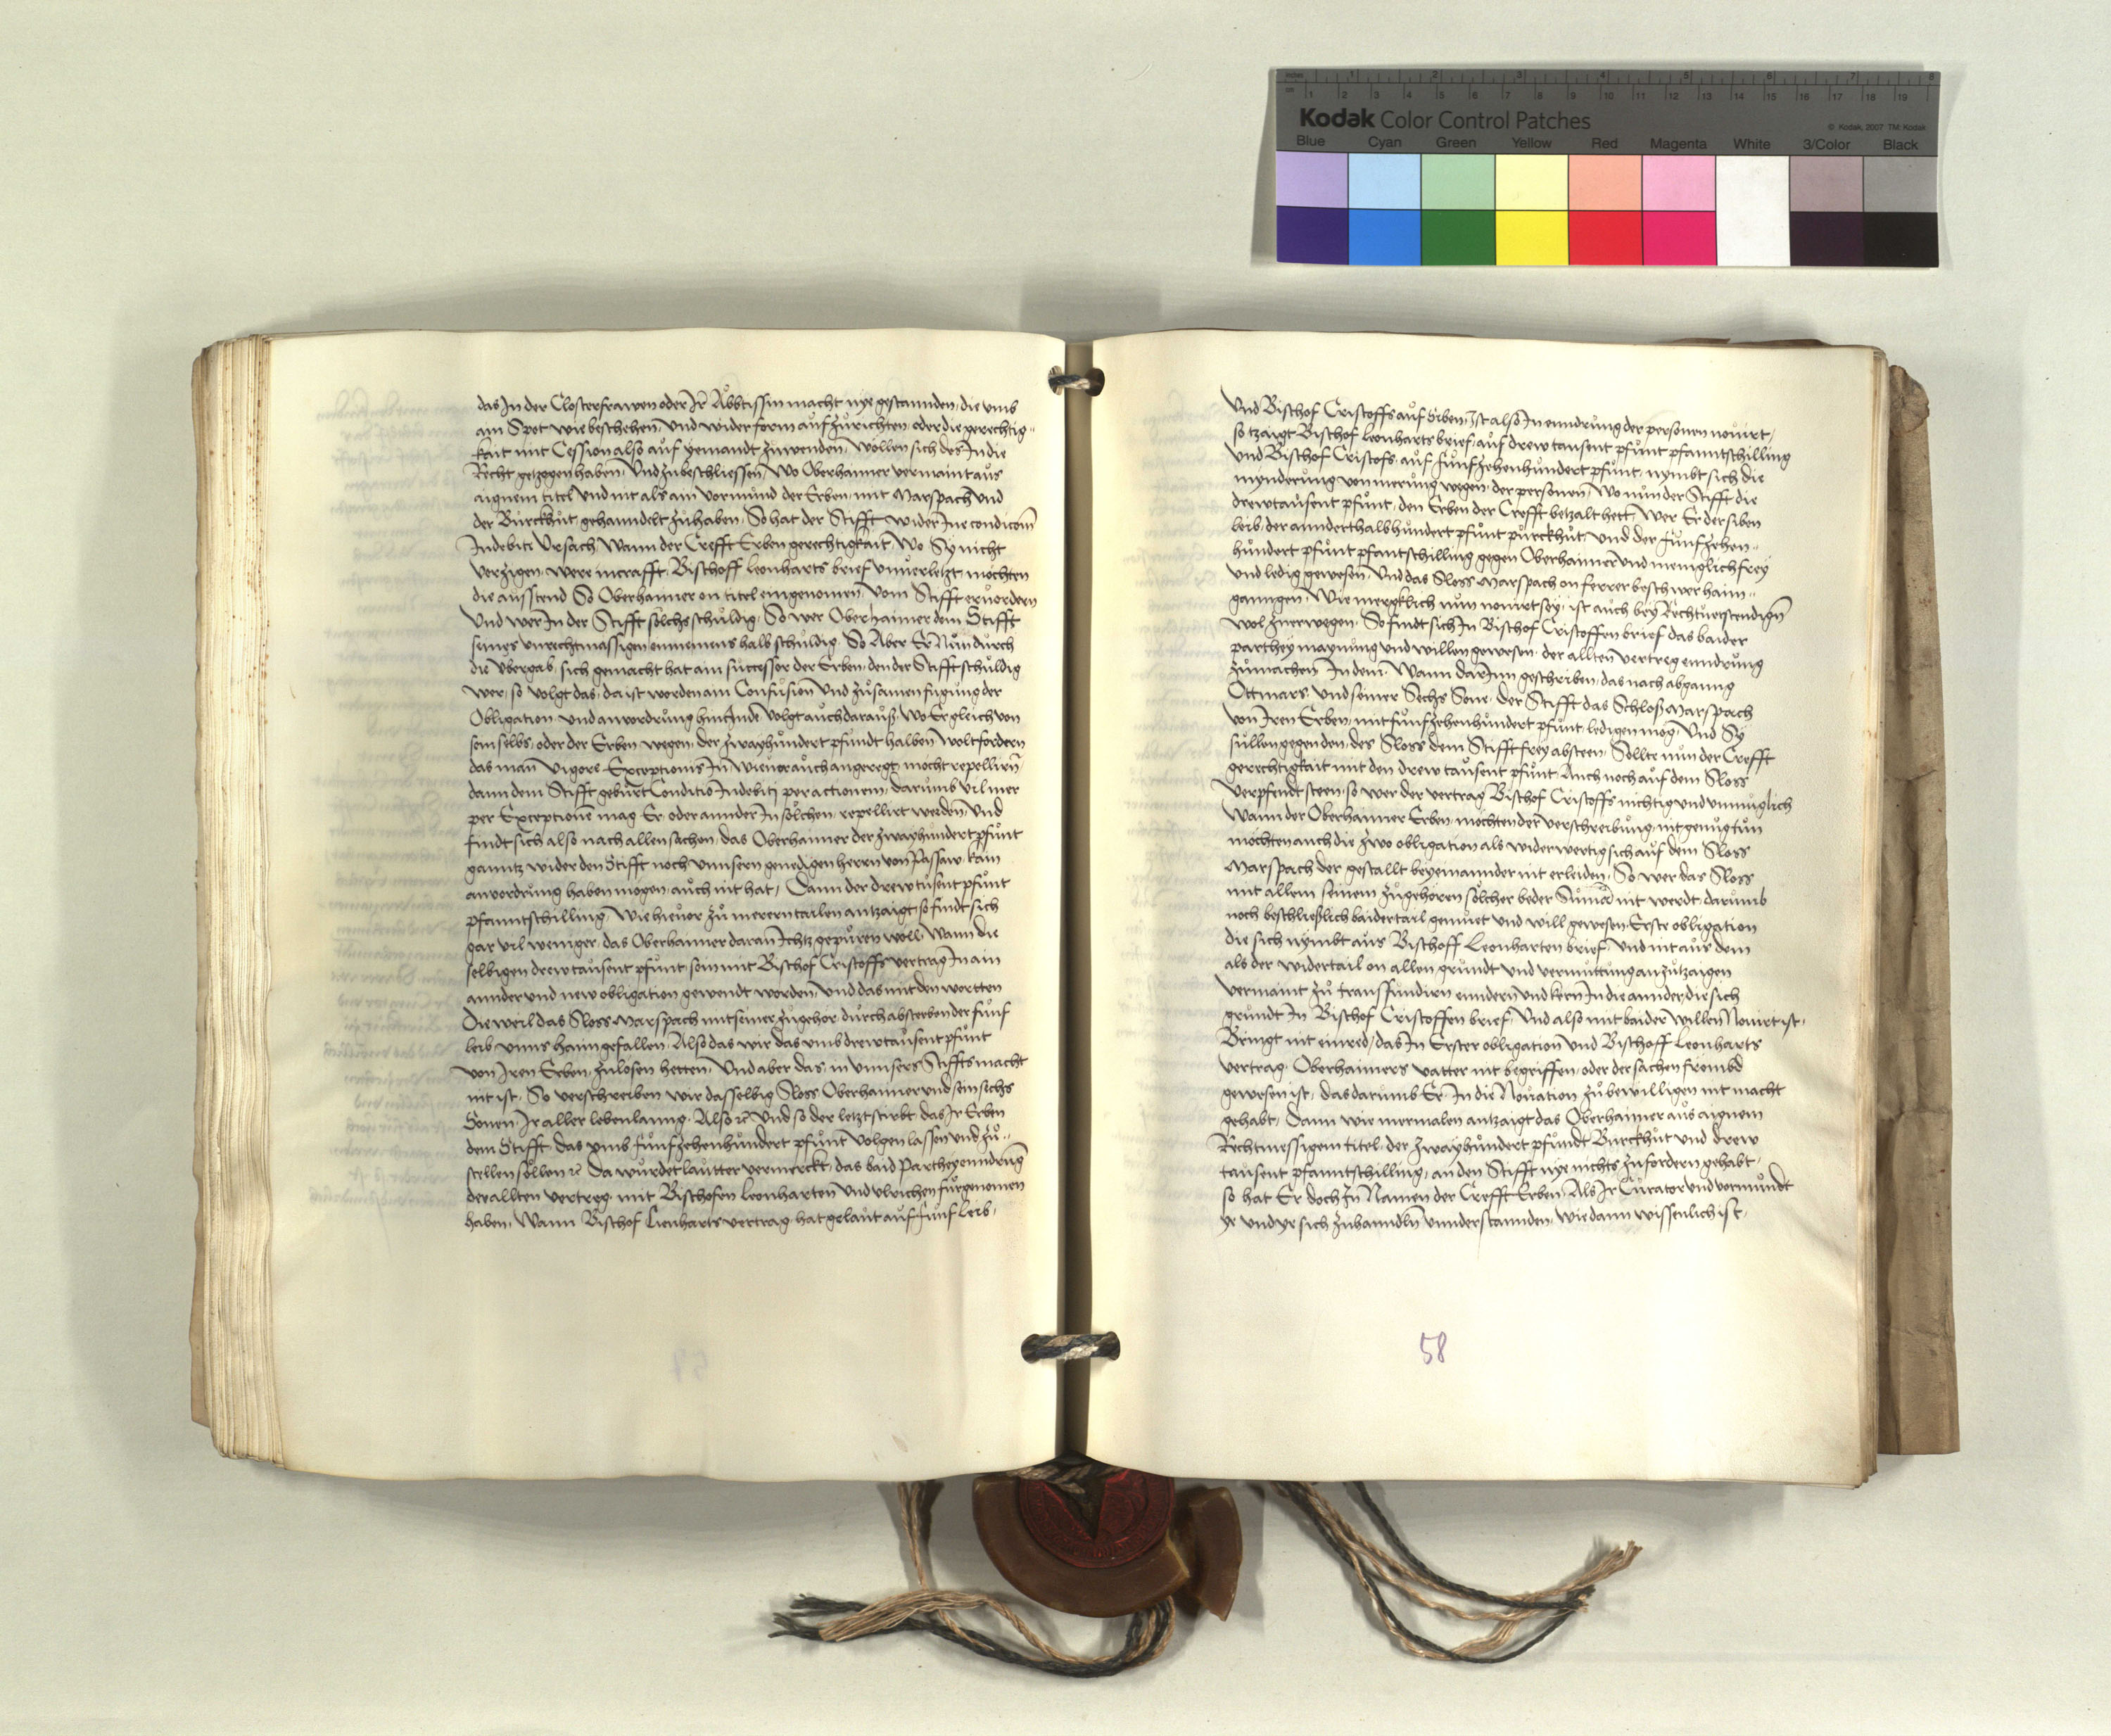 das In der Closterfrawen oder Ir Abbtissin macht nye gestannden, die umb
ain Spot wie beschehen, Und wider form aufzurichten, oder die gerechtig-
kait mit Cession also auf yemandt zuwenden, Wollen sich des In die
Recht getzogen haben, Und zubeschliessen, Wo Oberhaimer vermaint aus
aignem titel und nit als ain vormund der Erben, mit Marspach und
der Burckhut gehanndelt zuhaben, So hat der Stifft wider Ine condicom
Indebiti Ursach Wann der Crefft Erben gerechtigkait, Wo Sy nicht
verzigen, were in crafft, Bischoff Leonharts brief unverletzt, mochten
die ausstend So Oberhaimer on titel eingenomen, Vom Stifft ervordern
Und wer In der Stifft solchs schuldig, So wer Oberhaimer dem Stifft
seines unrechtmassigen einnemens halb schuldig, So Aber Er Nun durch
die Ubergab, sich gemacht hat ain successor der Erben, den der Stifft schuldig
wer, so volgt das, da ist worden ain Confusion Und zusamen fugung der
Obligation, und anvordrung hincInde, Volgt auch daraus, Wo Er gleich von
sein selbs, oder der Erben wegen, der zwayhundert pfundt halben Wolt fordern
das man Vigore Exceptionis In, wie vor auch angeregt, mocht repelliern,
dann dem Stifft geburt Conditio Indebiti per actionem, darumb vil mer
per Exceptionem mag Er, oder annder In solchen, repellirt werden, Und
findt sich also nach allen sachen, das Oberhaimer der zwayhundert pfunt
ganntz wider den Stifft noch unnsern genedigen herrn von Passaw, kain
anvordrung haben mogen, auch nit hat, Dann der drewtusent pfunt
pfanntschilling, Wie hievor zu merern tailen antzaigt, so findt sich
gar vil weniger, das Oberhaimer daran Ichtz gepuren woll, Wann die
selbigen drewtausent pfunt, sein mit Bischof Cristoffs vertrag In ain
annder und new obligation gewendt worden, Und das mit den wortten
Die weil das Sloss Marspach mit seiner zugehor, durch absterben der funf
leib unns haimgefallen, Also das wir das umb drewtausent pfunt
von Iren Erben, zulosen hetten, Und aber das, in unnsers Stiffts macht
nit ist, So verschreiben wir dasselbig Sloss Oberhaimer und sein sechs
Sonen, Ir aller lebenlanng, Also rc Und so der letzt stirbt, das Ir Erben
dem Stifft, das umb funfzehenhundert pfunt volgen lassen und zu-
stellen sollen rc Da wurdet lautter vermerckt, das baid Parthey enndrung
der allten vertreg mit Bischofen Leonharten und Ulrichen furgenomen
haben, Wann Bischof Lienharts vertrag, hat gelaut auf funf Leib,
Und Bischof Cristoffs auf Erben, Ist also In enndrung der personen novirt,
so tzaigt Bischof Leonharts brief, auf drewtausent pfunt pfanntschilling
Und Bischof Cristofs, auf funfzehenhundert pfunt, nymbt sich die
mynderung von merung wegen, der personen, Wo nun der Stifft die
drewtausent pfunt, den Erben der Crefft betzalt hett, Wer Er der siben
leib, der annderthalbhundert pfunt purckhut, und der funfzehen-
hundert pfunt pfantschilling gegen Oberhaimer und meniglich frey
und ledig gewesen, Und das Sloss Marspach on ferrer beschwer haim-
ganngen, Wie mergklich nun novirt sey, ist auch bey Rechtverstendign
wol zuerwegen, So findt sich In Bischof Cristoffen brief das baider
parthey maynung und willen gewesen, der allten vertreg enndrung
zumachen, In dem, Wann darInn geschriben, das nach abganng
Ottmars, und seiner Sechs Sone, der Stifft das Schloß Marspach
von Iren Erben, mit funfzehenhundert pfunt, ledigen mog, Und Sy
sullen gegen den, des Sloss dem Stifft frey absteen, Sollte nun der Crefft
gerechtigkait mit den drew tausent pfunt Auch noch auf dem Sloss
Verpfendt steen, so wer der vertrag Bischof Cristoffs nichtig und unmuglich
Wann der Oberhaimer Erben, mochten der verschreibung, nit genug tun
mochten auch die zwo obligation als widerwertig sich auf dem Sloss
Marspach der gestallt beyeinannder nit erleiden, So wer das Sloss
mit allem seinem zugehoren solcher beder Suma nit werdt, darumb
noch beschließlich baidertail gemuet und will gewesen, Erste obligation
die sich nymbt aus Bischoff Leonharten brief, Und nit aus dem
als der widertail on allen grundt und vermuttung anzutzaigen
vermaint zu transfundirn enndern und kern In die annder, die sich
grundt In Bischof Cristoffen brief, Und also mit baider willen Novirt ist,
Bringt nit einred, das In Erster obligation und Bischoff Leonharts
vertrag, Oberhaimers vatter nit begriffen, oder der sachen frembd
gewesen ist, das darumb Er, In die Novation zu bewilligen nit macht
gehabt, Dann wie mermalen antzaigt das Oberhaimer aus aignem
Rechtmessigem titel, der zwayhundert pfundt Burckhut und drew
tausent pfanntschilling, an den Stifft nye nichts zufordern gehabt,
so hat Er doch In Namen der Crefft Erben, Als Ir Curator und vormundt
ye und ye sich zuhanndln unnderstannden, wie dann wissenlich ist,
58
Kodak Color Control Patches
© Kodak, 2007 TM: Kodak
inches 1 2 3 4 5 6 7 8
cm 1 2 3 4 5 6 7 8 9 10 11 12 13 14 15 16 17 18 19
Blue Cyan Green Yellow Red Magenta White 3/Color Black